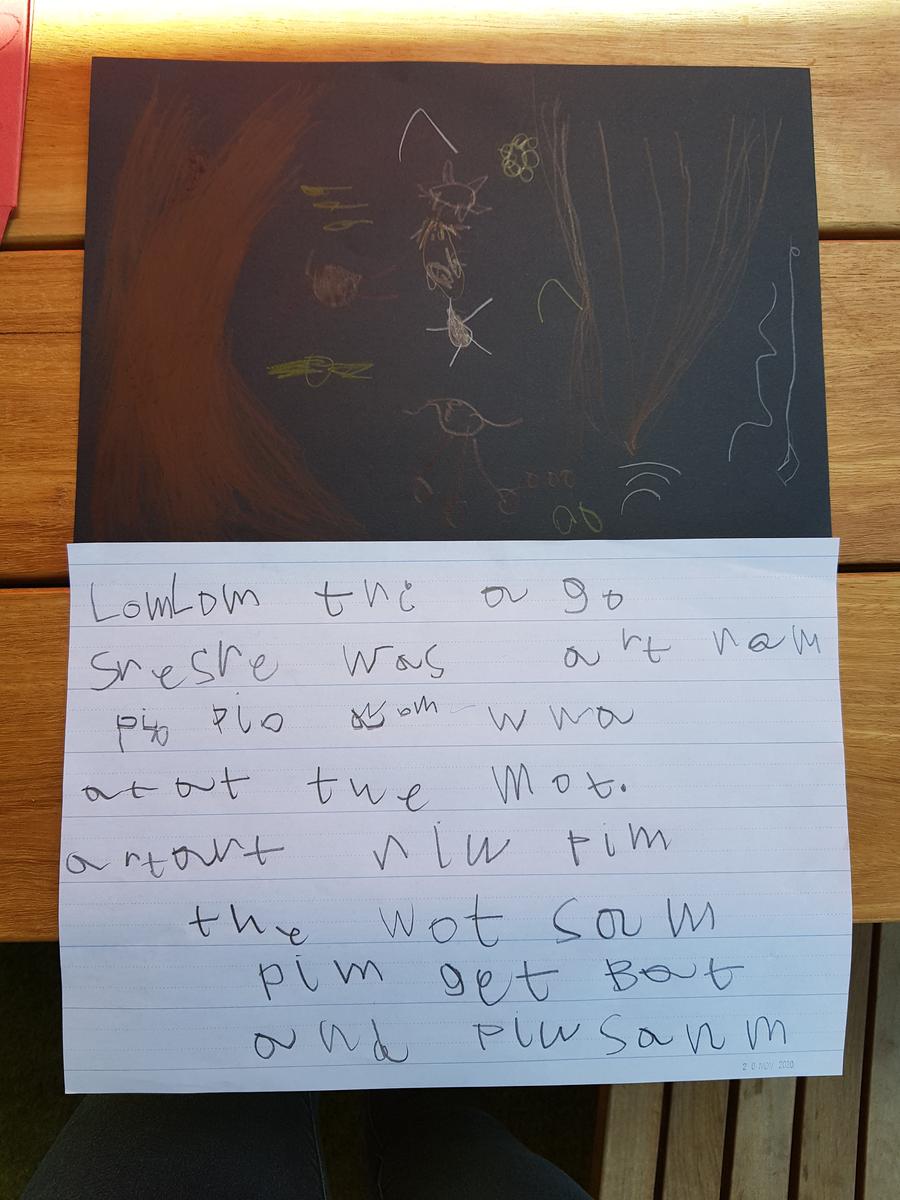 LomLom thi a go
sresre was art nam
pio pio wna
atat the Mot.
artart niw pim
the wot sam
pim get Bat
and piw sanm
20 NOV 2020